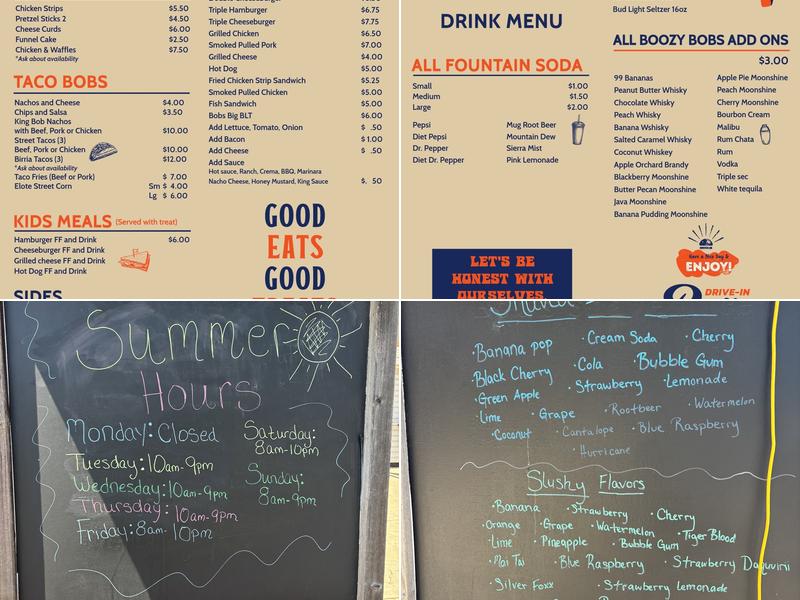 Chicken Strips $5.50
Pretzel Sticks 2 $4.50
Cheese Curds $6.00
Funnel Cake $2.50
Chicken & Waffles $7.50
*Ask about availability
TACO BOBS
Nachos and Cheese $4.00
Chips and Salsa $3.50
King Bob Nachos
with Beef, Pork or Chicken $10.00
Street Tacos (3)
Beef, Pork or Chicken $10.00
Birria Tacos (3) $12.00
*Ask about availability
Taco Fries (Beef or Pork) $ 7.00
Elote Street Corn Sm $ 4.00
Lg $ 6.00
KIDS MEALS (Served with treat)
Hamburger FF and Drink $6.00
Cheeseburger FF and Drink
Grilled cheese FF and Drink
Hot Dog FF and Drink
SIDES
Triple Hamburger $6.75
Triple Cheeseburger $7.75
Grilled Chicken $6.50
Smoked Pulled Pork $7.00
Grilled Cheese $4.00
Hot Dog $5.00
Fried Chicken Strip Sandwich $5.25
Smoked Pulled Chicken $5.00
Fish Sandwich $5.00
Bobs Big BLT $6.00
Add Lettuce, Tomato, Onion $ .50
Add Bacon $ 1.00
Add Cheese $ .50
Add Sauce
Hot sauce, Ranch, Crema, BBQ, Marinara
Nacho Cheese, Honey Mustard, King Sauce $. 50
GOOD
EATS
GOOD
DRINK MENU
ALL FOUNTAIN SODA
Small $1.00
Medium $1.50
Large $2.00
Pepsi Mug Root Beer
Diet Pepsi Mountain Dew
Dr. Pepper Sierra Mist
Diet Dr. Pepper Pink Lemonade
LET'S BE
HONEST WITH
OURSELVES
Bud Light Seltzer 16oz
ALL BOOZY BOBS ADD ONS
$3.00
99 Bananas Apple Pie Moonshine
Peanut Butter Whiskey Peach Moonshine
Chocolate Whiskey Cherry Moonshine
Peach Whisky Bourbon Cream
Banana Wshisky Malibu
Salted Caramel Whisky Rum Chata
Coconut Whiskey Rum
Apple Orchard Brandy Vodka
Blackberry Moonshine Triple sec
Butter Pecan Moonshine White tequila
Java Moonshine
Banana Pudding Moonshine
Have a Nice Day &
ENJOY!
DRIVE-IN
Summer
Hours
Monday: Closed
Tuesday: 10am-9pm
Wednesday: 10am-9pm
Thursday: 10am-9pm
Friday: 8am-10pm
Saturday:
8am-10pm
Sunday:
8am-9pm
• Banana pop • Cream Soda • Cherry
• Black Cherry • Cola • Bubble Gum
• Green Apple • Strawberry • Lemonade
• Lime • Grape • Rootbeer • Watermelon
• Coconut • Cantalope • Blue Raspberry
• Hurricane
Slushy Flavors
• Banana • Strawberry • Cherry
• Orange • Grape • Watermelon • Tiger Blood
• Lime • Pineapple • Bubble Gum
• Mai Tai • Blue Raspberry • Strawberry Daquvirii
• Silver Foxx • Strawberry Lemonade